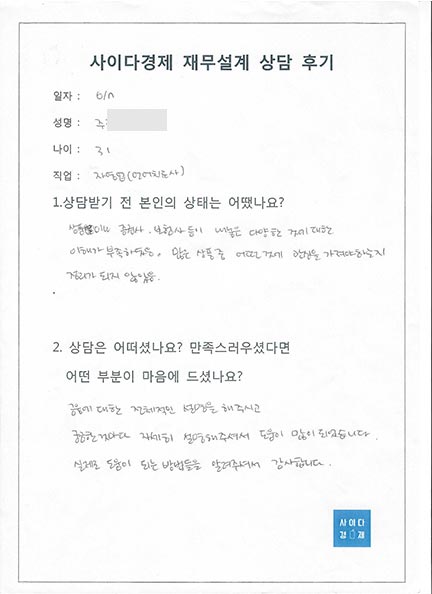 사이다경제 재무설계 상담 후기
일자 : 6/17
성명 : 주
나이 : 31
직업 : 자영업(언어치료사)
1.상담받기 전 본인의 상태는 어땠나요?
증권사. 보험사 등이 내놓은 다양한 것에 대한
이해가 부족하였음, 많은 상품 중 어떤것에 관심을 가져야하는지
정리가 되지 않았음.
2. 상담은 어떠셨나요? 만족스러우셨다면
어떤 부분이 마음에 드셨나요?
금융에 대한 전체적인 설명을 해주시고
궁금한것마다 자세히 설명해주셔서 도움이 많이 되었습니다.
실제로 도움이 되는 방법들을 알려주셔서 감사합니다.
사이다
경제